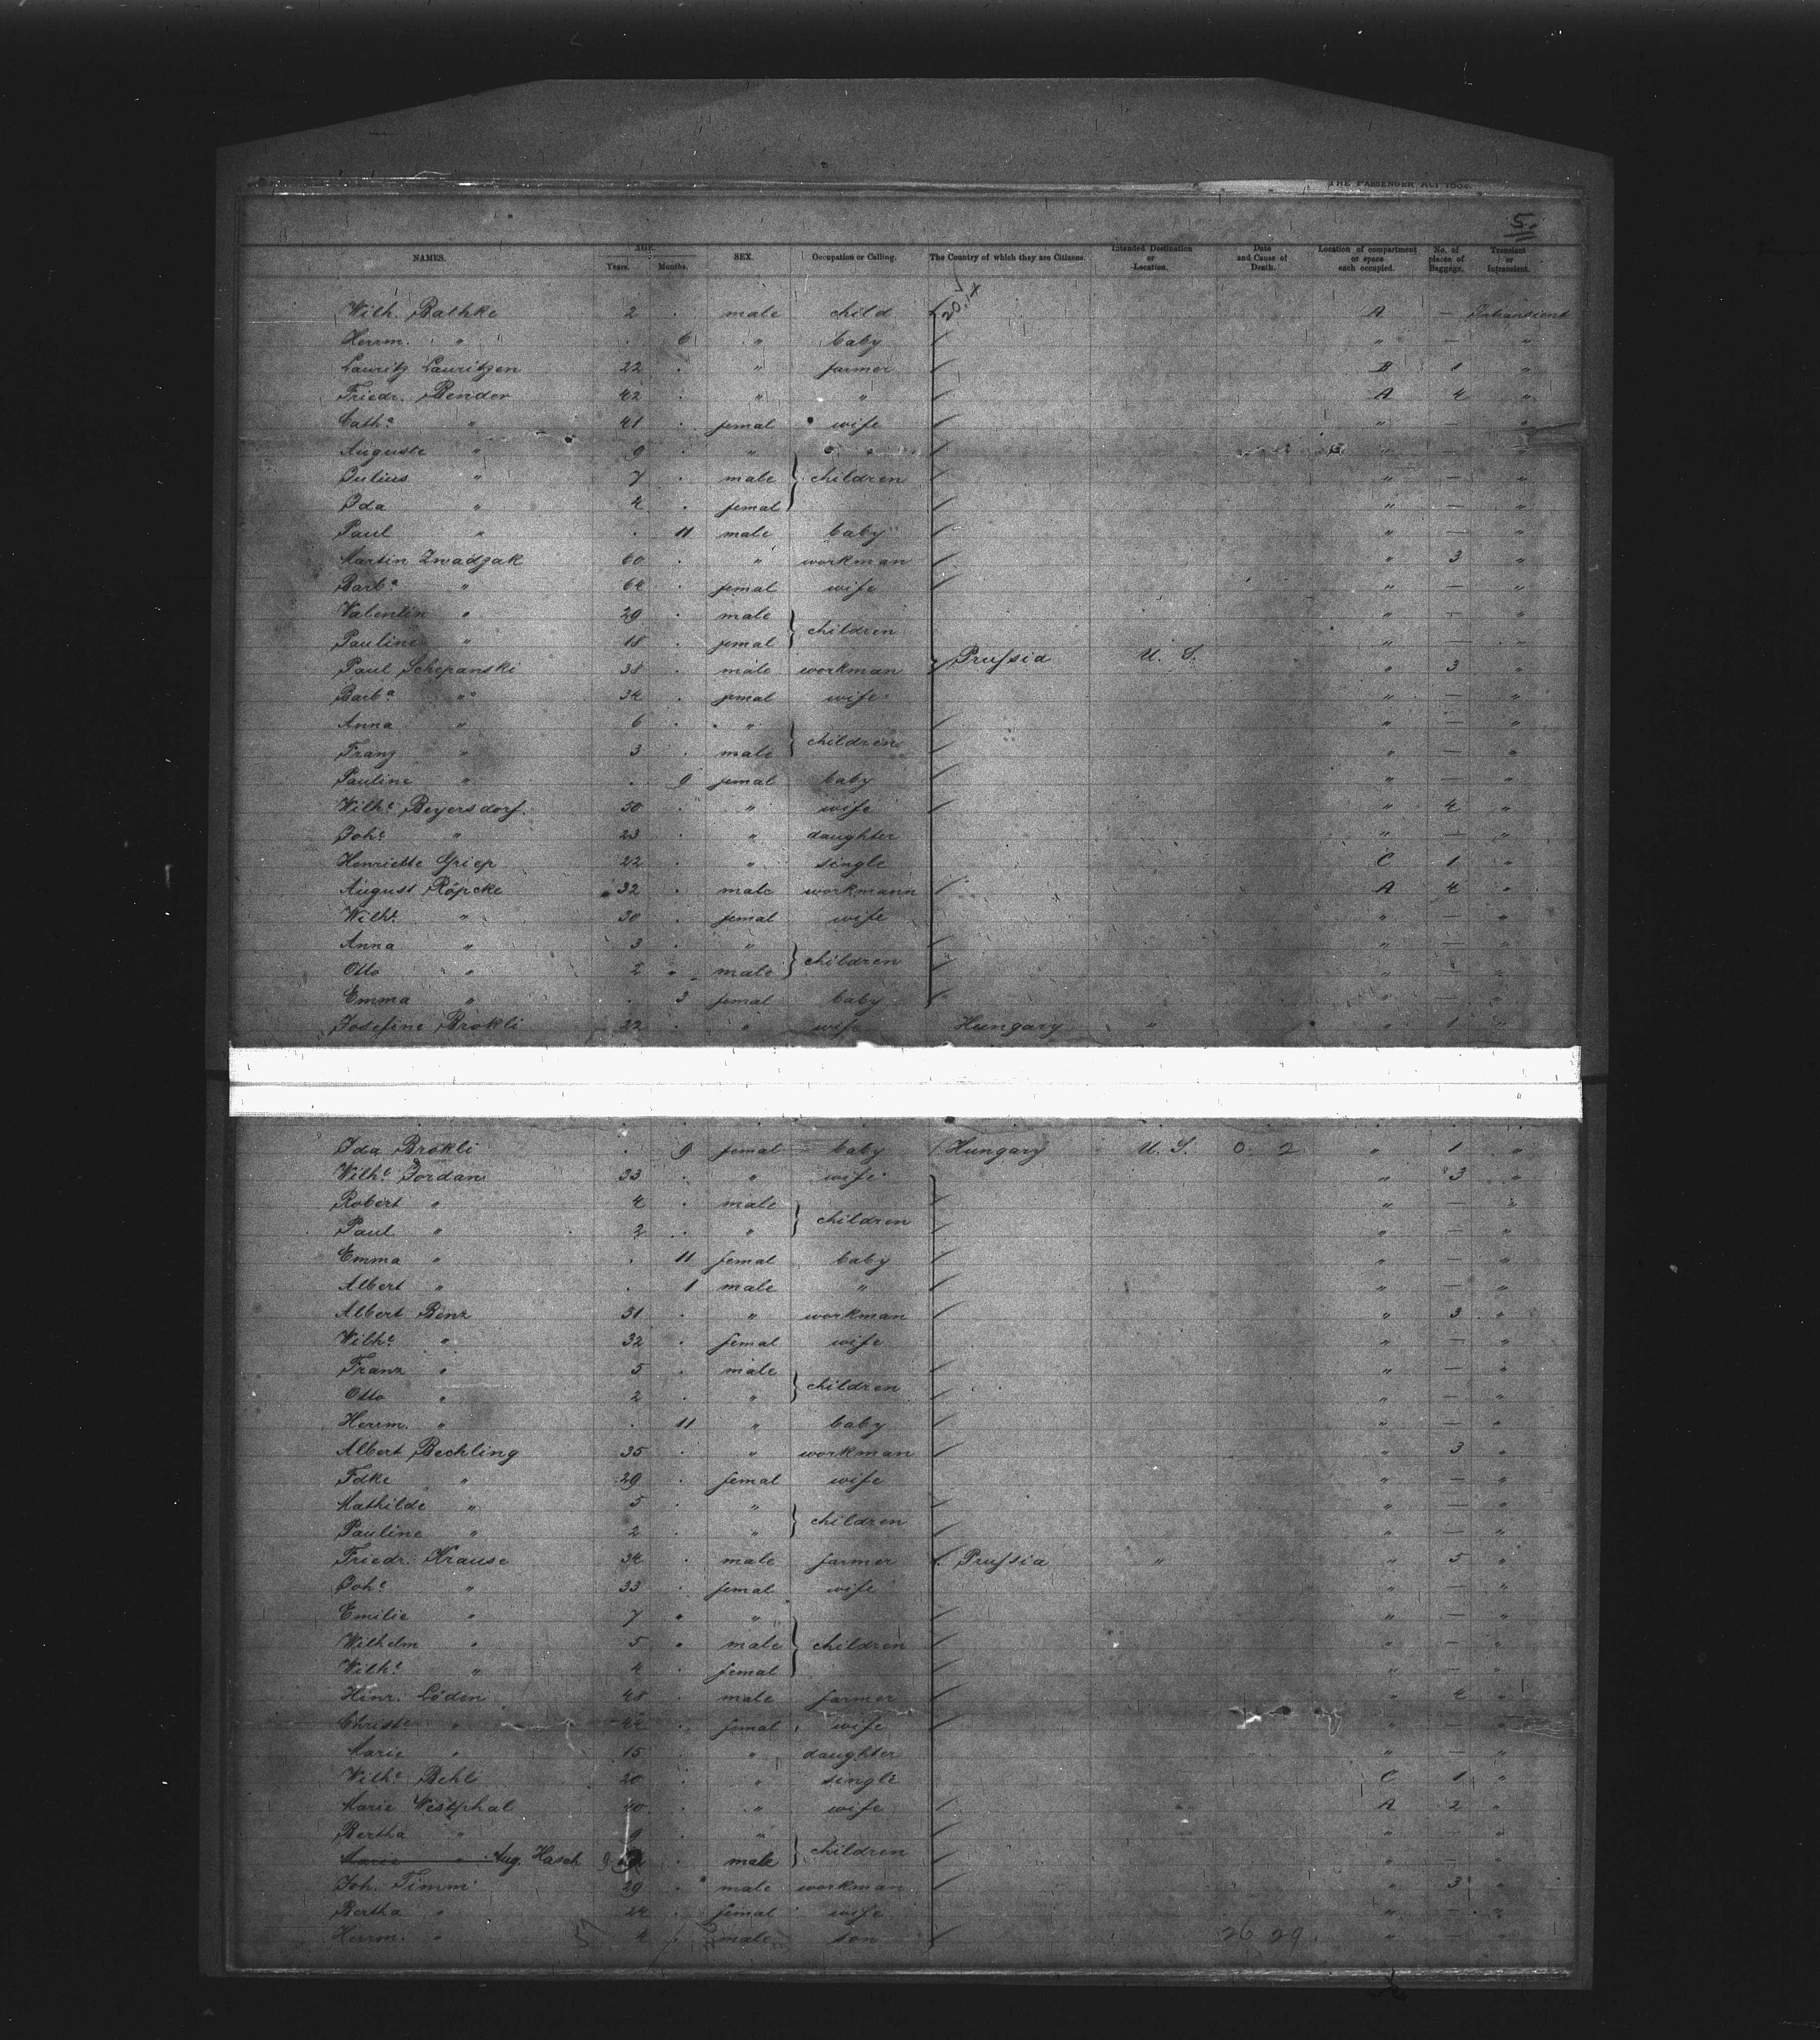 THE PASSENGER ACT 1882.
5.
NAMES. AGE. Years. Months. SEX. Occupation or Calling. The Country of which they are Citizens. Intended Destination or Location. Date and Cause of Death. Location of compartment or space each occupied. No. of pieces of Baggage. Transient or Intransient.
Wilh. Bathke 2 . male child A — Intransient
Herrm. " . 6 " baby " — "
Lauritz Lauritzen 22 . " farmer B 1 "
Friedr. Bender 42 . " " A 4 "
Cath.a " 41 . femal wife " — "
Auguste " 9 . " " — "
Julius " 7 . male } children " — "
Ida " 4 . femal " — "
Paul " . 11 male baby " — "
Martin Zwadzak 60 . " workman " 3 "
Barb.a " 64 . femal wife " — "
Valentin " 29 . male " — "
} children
Pauline " 18 . femal " — "
Paul Schepanski 38 . male workman " Prussia U. S. " 3 "
Barb.a " 34 . femal wife " — "
Anna " 6 . " " — "
} children
Franz " 3 . male " — "
Pauline " . 9 femal baby " — "
Wilh.e Beyersdorf. 50 . " wife " 4 "
Joh.e " 23 . " daughter " — "
Henriette Griep 22 . " single C 1 "
August Röpcke 32 . male workmann A 4 "
Wilh.e " 30 . femal wife " — "
Anna " 3 . " " — "
} children
Otto " 2 . male " — "
Emma " . 3 femal baby " — "
Josefine Brokli 22 . " wife Hungary " " 1 "
Ida Brokli . 9 femal baby Hungary U. S. 0 2 " 1 "
Wilh.e Jordan 33 . " wife " 3 "
Robert " 4 . male " — "
} children
Paul " 2 . " " — "
Emma " . 11 femal baby " — "
Albert " . 1 male " " — "
Albert Benz 31 . " workman " 3 "
Wilh.e " 32 . femal wife " — "
Franz " 5 . male " — "
} children
Otto " 2 . " " — "
Herrm. " . 11 " baby " — "
Albert Bechling 35 . " workman " 3 "
Fdke " 29 . femal wife " — "
Mathilde " 5 . " " — "
} children
Pauline " 2 . " " — "
Friedr. Krause 34 . male farmer Prussia " " 5 "
Joh.e " 33 . femal wife " — "
Emilie " 7 . " " — "
Wilhelm " 5 . male } children " — "
Wilh.e " 4 . femal " — "
Hinr. Löden 48 . male farmer " 4 "
Christe " 44 . femal wife " — "
Marie " 15 . " daughter " — "
Wilh.e Behl 20 . " single C 1 "
Marie Westphal 40 . " wife A 2 "
Bertha " 9 . " " — "
} children
Marie " Aug. Hasch . male " — "
Joh. Timm 29 . male workman " 3 "
Bertha " 24 . femal wife " — "
Herrm. " 4 . male son 26 29 " — "